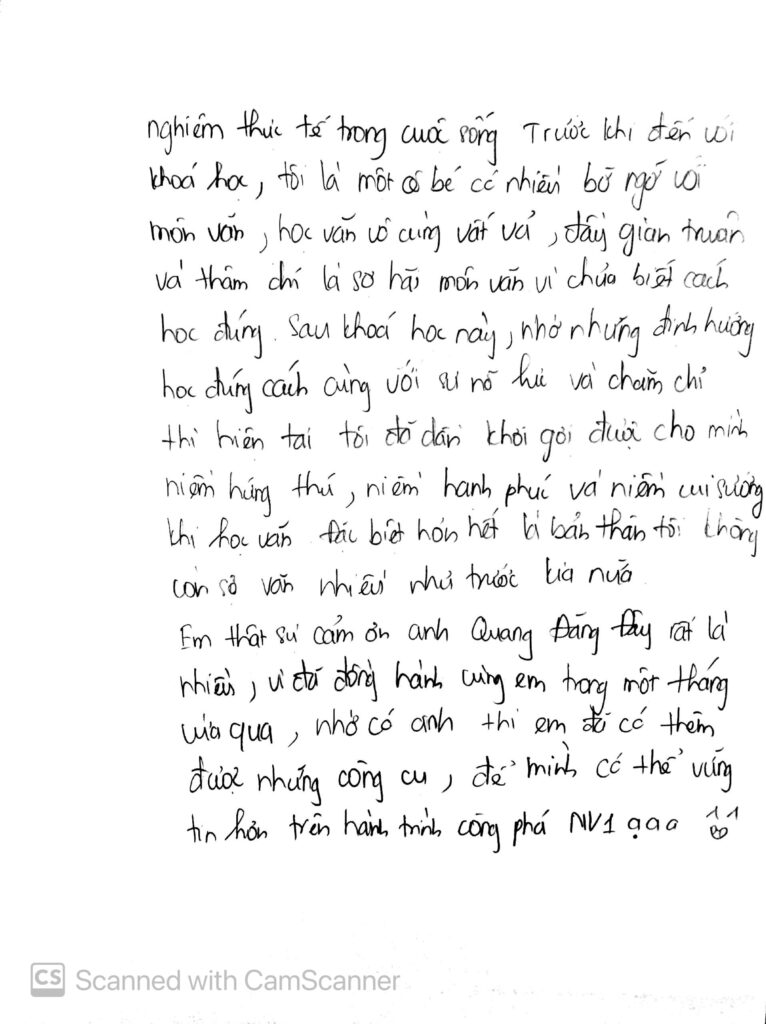 nghiệm thực tế trong cuộc sống Trước khi đến với
khoá học, tôi là một cô bé có nhiều bỡ ngỡ với
môn văn, học văn vô cùng vất vả, đầy gian truân
và thậm chí là sợ hãi môn văn vì chưa biết cách
học đúng. Sau khoá học này, nhờ những định hướng
học đúng cách cùng với sự nỗ lực và chăm chỉ
thì hiện tại tôi đã dần khơi gợi được cho mình
niềm hứng thú, niềm hạnh phúc và niềm vui sướng
khi học văn Đặc biệt hơn hết là bản thân tôi không
còn sợ văn nhiều như trước kia nữa
Em thật sự cảm ơn anh Quang Đăng Đây rất là
nhiều, vì đã đồng hành cùng em trong một tháng
vừa qua, nhờ có anh thì em đã có thêm
được những công cụ, để mình có thể vững
tin hơn trên hành trình công phá NV1 ạaa
CS Scanned with CamScanner